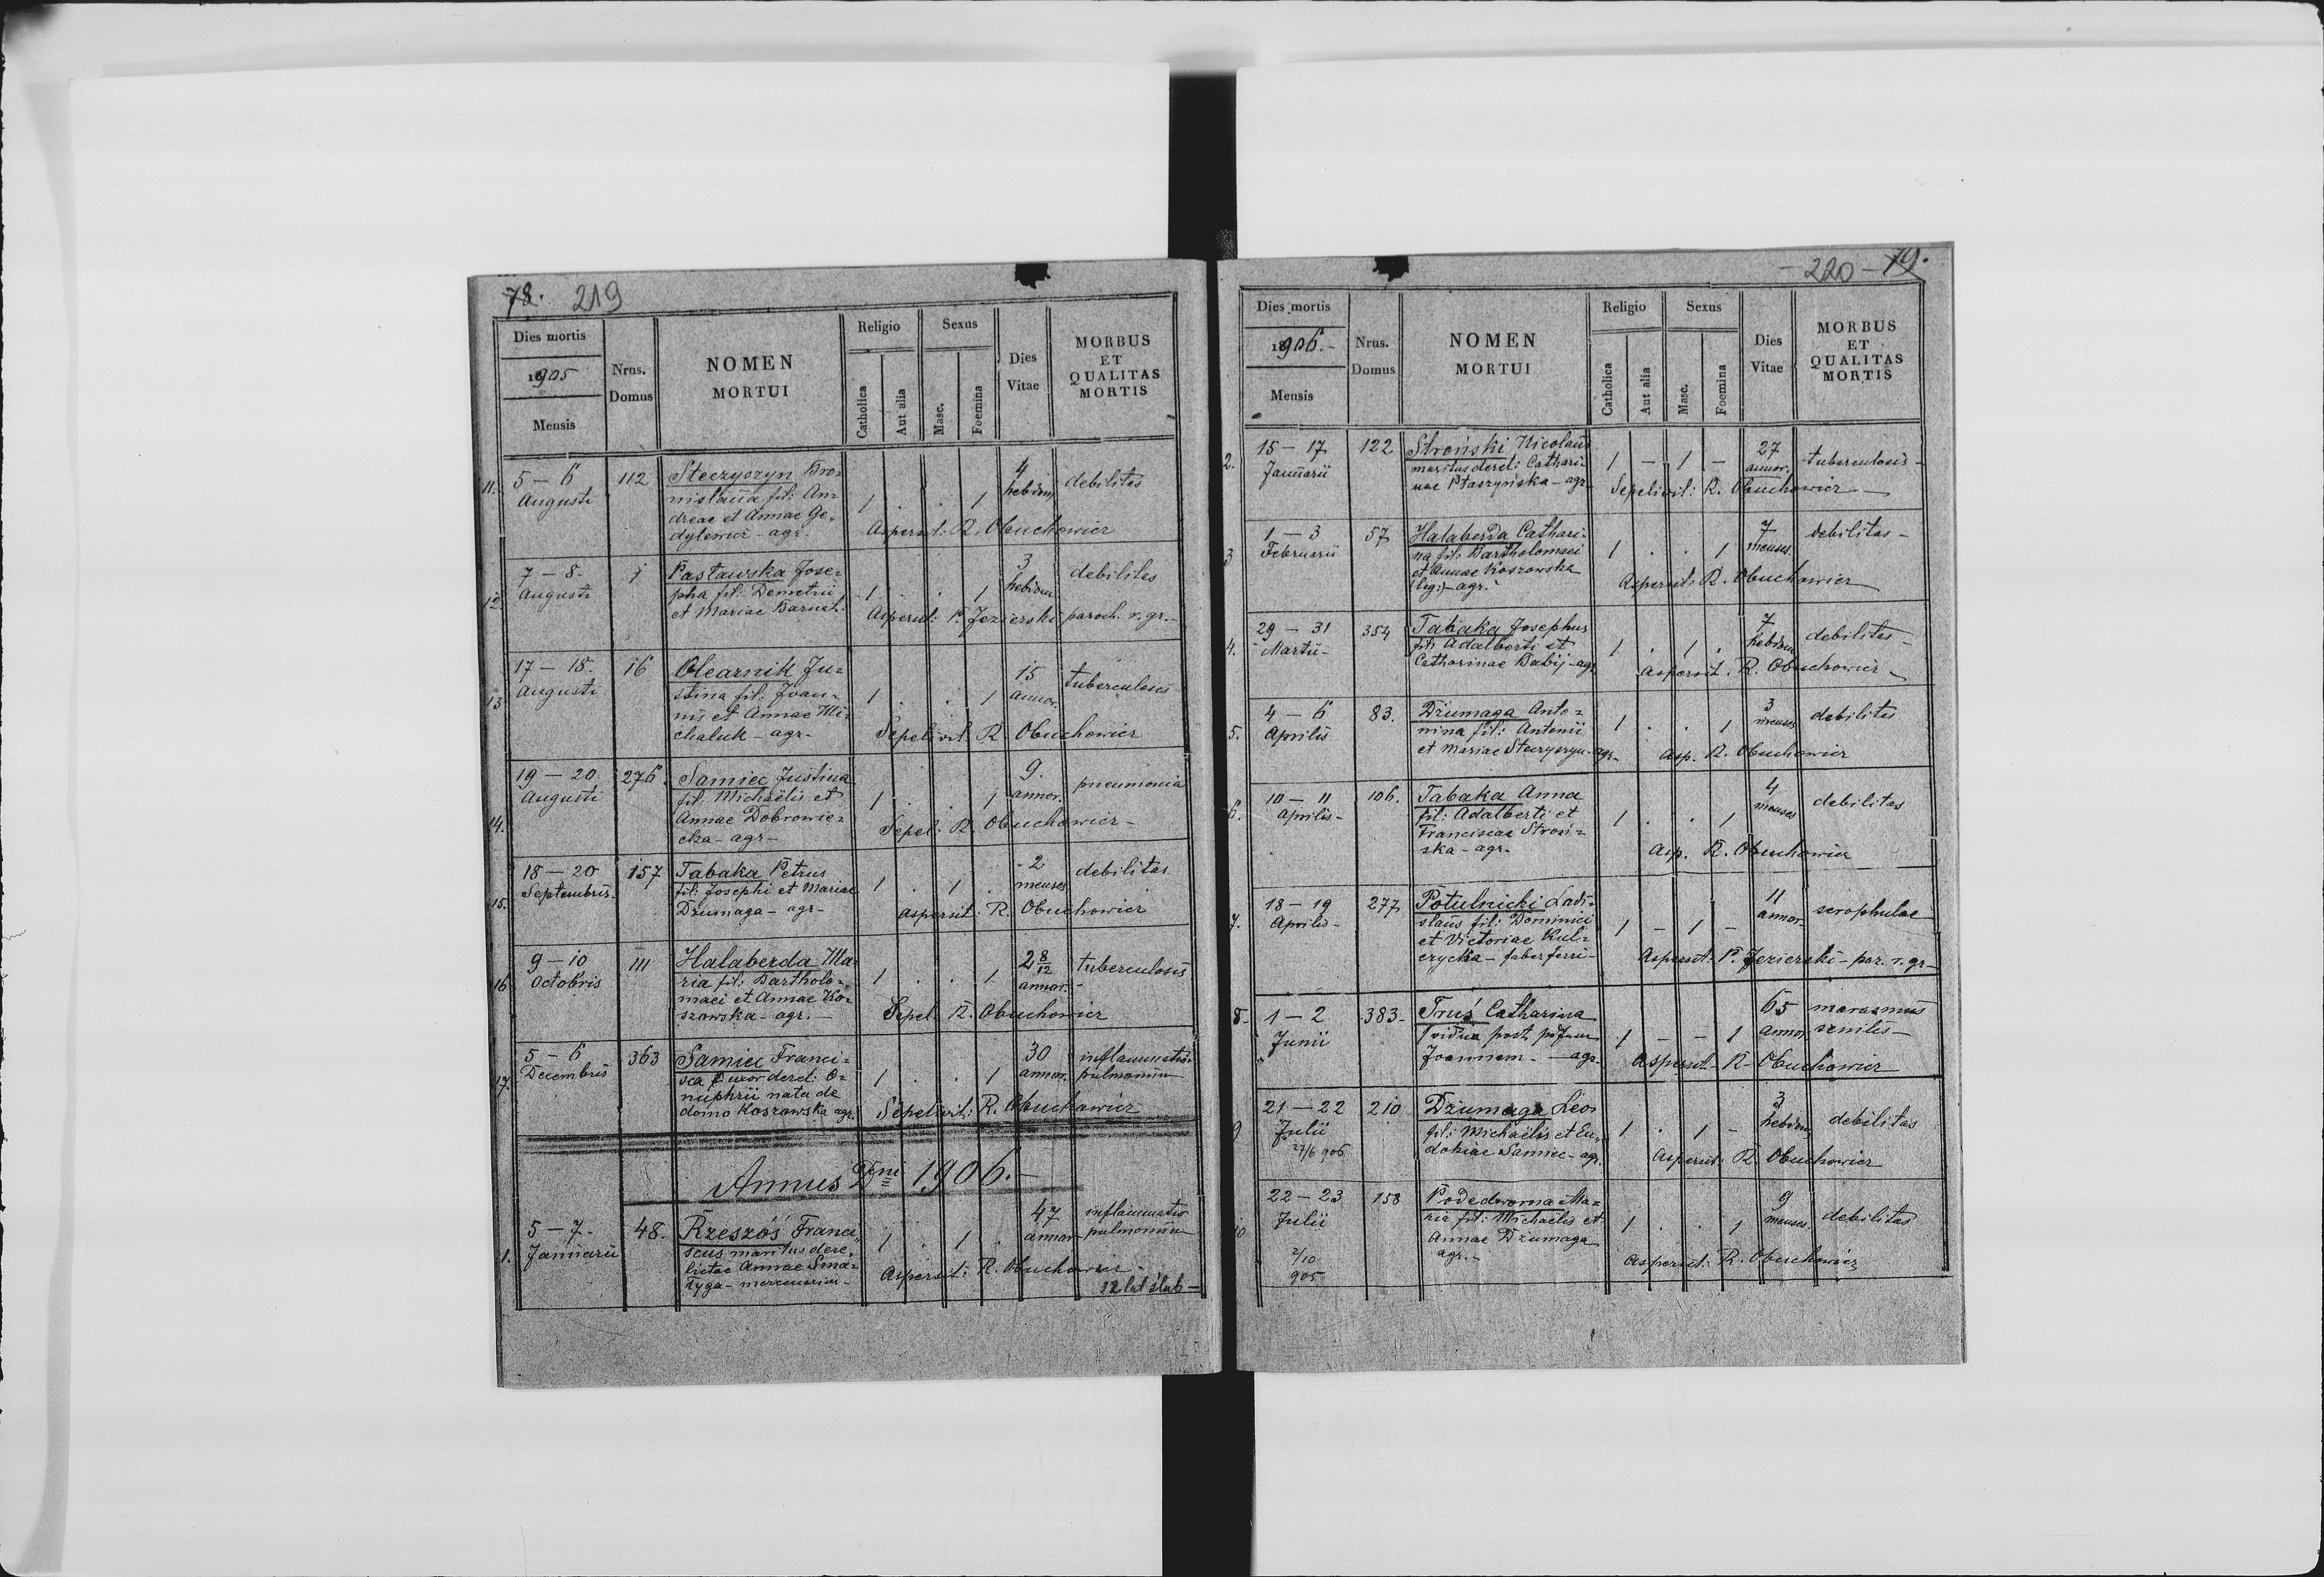 78. 219
Dies mortis
1905
Mensis
Nrus.
Domus
NOMEN
MORTUI
Religio
Catholica
Aut alia
Sexus
Masc.
Foemina
Dies
Vitae
MORBUS
ET
QUALITAS
MORTIS
11. 5 – 6 112 Steczyszyn Bro= 4 debilitas
Augusti nislaua fil: An= 1 . . 1 hebdom
dreae et Annae Ge=
dylewicz - agr. Aspersit: R. Obuchowicz
12 7 – 8. 1 Pasławska Jose= 3 debilitas
Augusti pha fil: Demetrii 1 . . 1 hebdom
et Mariae Barnat. Aspersit: P. Jezierski paroch. r. gr. -
13 17 – 18. 16 Olearnik Ju= 15 tuberculosis
Augusti stina fil: Joan= 1 . . 1 annor.
nis et Annae Mi=
chaluk - agr - Sepelivit R. Obuchowicz
14. 19 – 20. 276. Samiec Justina 9. pneumonia
Augusti fil. Michaëlis et 1 . . 1 annor.
Annae Dobrowie=
cka - agr - Sepel: R. Obuchowicz -
15. 18 – 20 157 Tabaka Petrus 2 debilitas
Septembris fil: Josephi et Mariae 1 . 1 . menses
Dżumaga - agr - aspersit: R. Obuchowicz
16 9 – 10 111 Halaberda Ma= 2 8/12 tuberculosis
Octobris ria fil: Bartholo= 1 . . 1 annor. -
maei et Annae Ko=
szowska - agr. - Sepel. R. Obuchowicz
17. 5 – 6 363 Samiec Franci= 30 inflammatio
Decembris sca uxor derel: O= 1 . . 1 annor. pulmonum
nuphrii nata de
domo Koszowska agr. Sepelivit: R. Obuchowicz
Annus Dni 1906. -
1. 5 – 7 - 48. Rzeszóś Franci= 47 inflammatio
Januarii scus maritus dere= 1 . 1 . annor pulmonum
lictae Annae Sma=
tyga - mercenarius - Aspersit: R. Obuchowicz -
12 lat ślub -
- 220 - 79.
Dies mortis
1906. -
Mensis
Nrus.
Domus
NOMEN
MORTUI
Religio
Catholica
Aut alia
Sexus
Masc.
Foemina
Dies
Vitae
MORBUS
ET
QUALITAS
MORTIS
2. 15 – 17 122 Stroński Nicolaus 27 tuberculosis -
Januarii maritus derel: Cathari= 1 – 1 – annor.
nae Ptaszyńska - agr Sepelivit: R. Obuchowicz -
3 1 – 3 57 Halaberda Cathari= 7 debilitas -
Februarii na fil: Bartholomaei 1 . . 1 menses.
et Annae Koszowska
leg:) - agr. Aspersit: R. Obuchowicz
4. 29 – 31 354 Tabaka Josephus 7 debilitas -
Martii - fil: Adalberti et 1 . 1 . hebdom
Catharinae Babij - agr. aspersit: R. Obuchowicz -
5. 4 – 6 83. Dżumaga Anto= 3 debilitas
Aprilis nina fil: Antonii 1 . . 1 menses
et Mariae Steczyszyn - agr. Asp. R. Obuchowicz
6. 10 – 11 106. Tabaka Anna 4 debilitas
Aprilis - fil: Adalberti et 1 . . 1 menses
Franciscae Stroń=
ska - agr. Asp. R. Obuchowicz
7. 18 – 19 277 Potulnicki Ladi= 11 scrophulae
Aprilis - slaus fil: Dominici 1 – 1 – annor.
et Victoriae Kul=
czycka - faber ferri - Aspersit: P. Jezierski - par. r. gr -
8 - 1 – 2 383 - Truś Catharina 65 marasmus
Junii vidua post Joannem - agr. 1 – – 1 annor. senilis -
Aspersit - R - Obuchowicz
9 21 – 22 210 Dżumaga Leo 3 debilitas
Julii fil: Michaëlis et Eu= 1 . 1 – hebdom
27/6 906 dokiae Samiec - agr. Aspersit: R. Obuchowicz
10 22 – 23 158 Podedworna Ma= 9 debilitas
Julii ria fil: Michaëlis et 1 . . 1 menses.
2/10 Annae Dżumaga
905 agr. - Aspersit: R. Obuchowicz